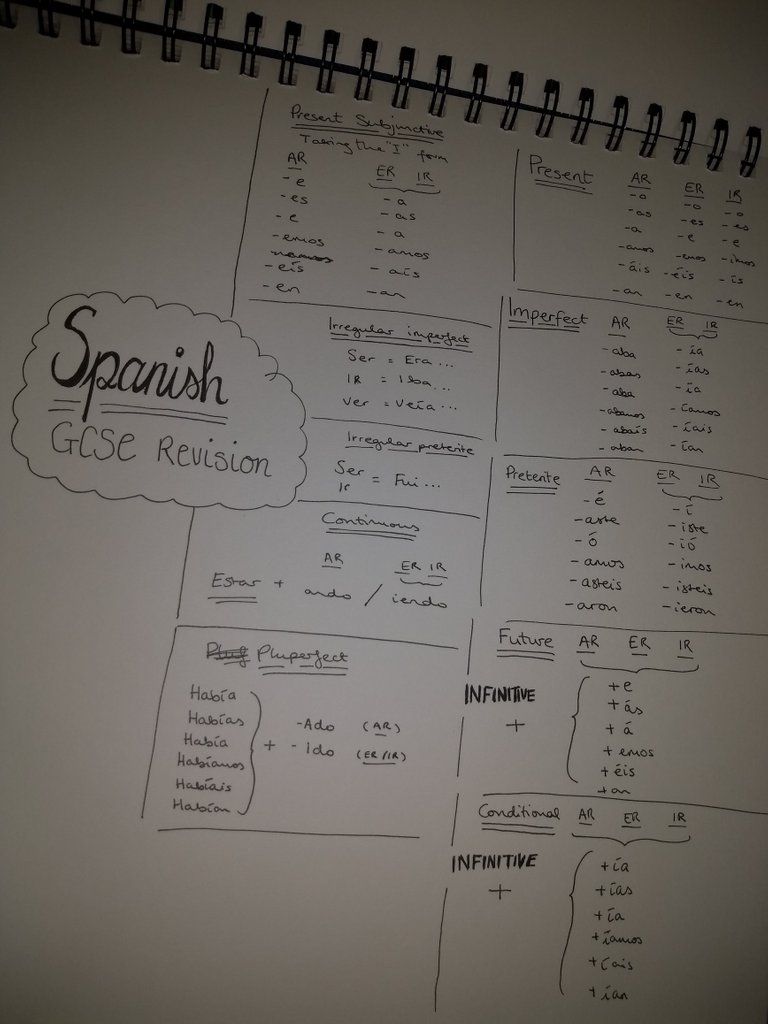 Spanish
GCSE Revision
Present Subjunctive
Taking the "I" form
AR ER IR
-e -a
-es -as
-e -a
-emos -amos
-eís -aís
-en -an
Present AR ER IR
-o -o -o
-as -es -es
-a -e -e
-amos -emos -imos
-áis -éis -ís
-an -en -en
Irregular imperfect
Ser = Era...
IR = Iba...
Ver = Veía...
Imperfect AR ER IR
-aba -ía
-abas -ías
-aba -ía
-abamos -íamos
-abais -íais
-aban -ían
Irregular preterite
Ser
Ir = Fui...
Preterite AR ER IR
-é -í
-aste -iste
-ó -ió
-amos -imos
-asteis -isteis
-aron -ieron
Continuous
AR ER IR
Estar + ando / iendo
Pluperfect
Había
Habías
Había
Habíamos
Habíais
Habían
+ -Ado (AR)
-Ido (ER/IR)
Future AR ER IR
INFINITIVE
+
+e
+ás
+á
+emos
+éis
+an
Conditional AR ER IR
INFINITIVE
+
+ía
+ías
+ía
+íamos
+íais
+ían